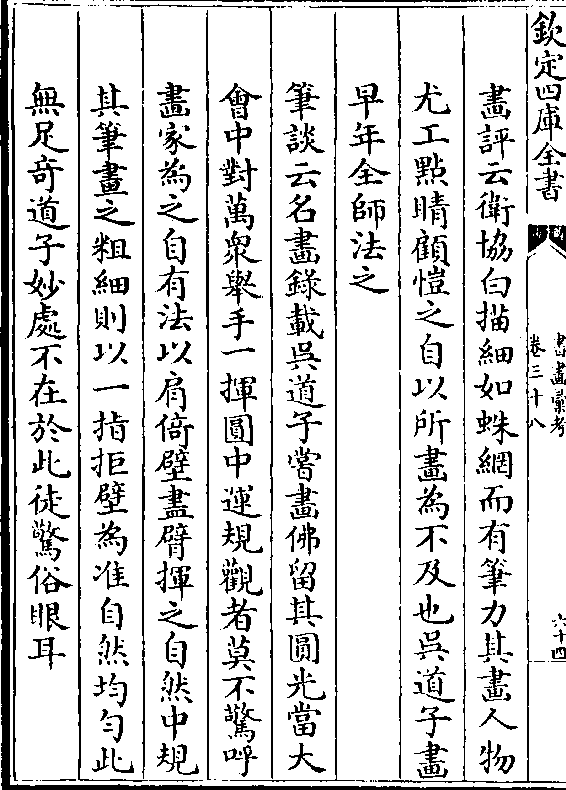 欽定四庫全書
書畫彙考
卷三十八
六十四
畫評云衛協白描細如蛛網而有筆力其畫人物
尤工點睛顧愷之自以所畫為不及也吳道子畫
早年全師法之
筆談云名畫錄載吳道子嘗畫佛留其圓光當大
會中對萬衆舉手一揮圓中運規觀者莫不驚呼
畫家為之自有法以肩倚壁盡臂揮之自然中規
其筆畫之粗細則以一指拒壁為准自然均勻此
無足竒道子妙處不在於此徒驚俗眼耳